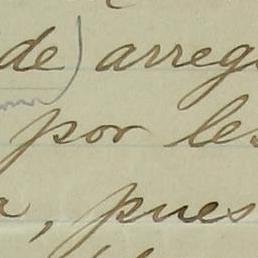 de) arreg
por les
, pues